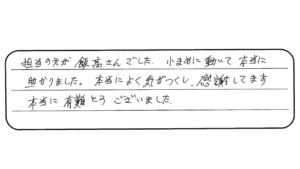 担当の方が飯高さんでした. 小まめに動いて本当に
助かりました. 本当によく気がつくし, 感謝してます
本当に有難とうございました.